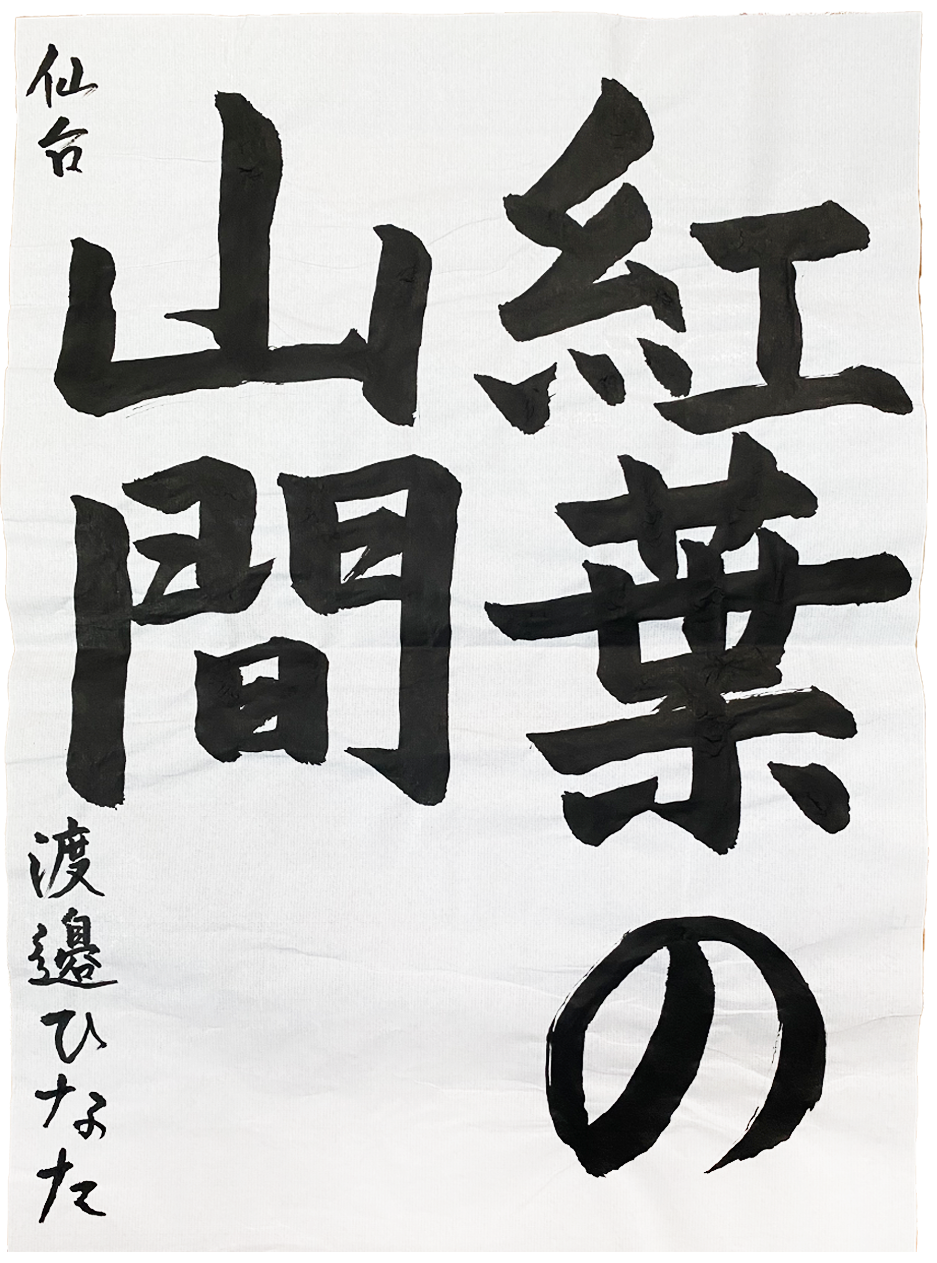 紅葉の
山間
仙台
渡邉ひなた